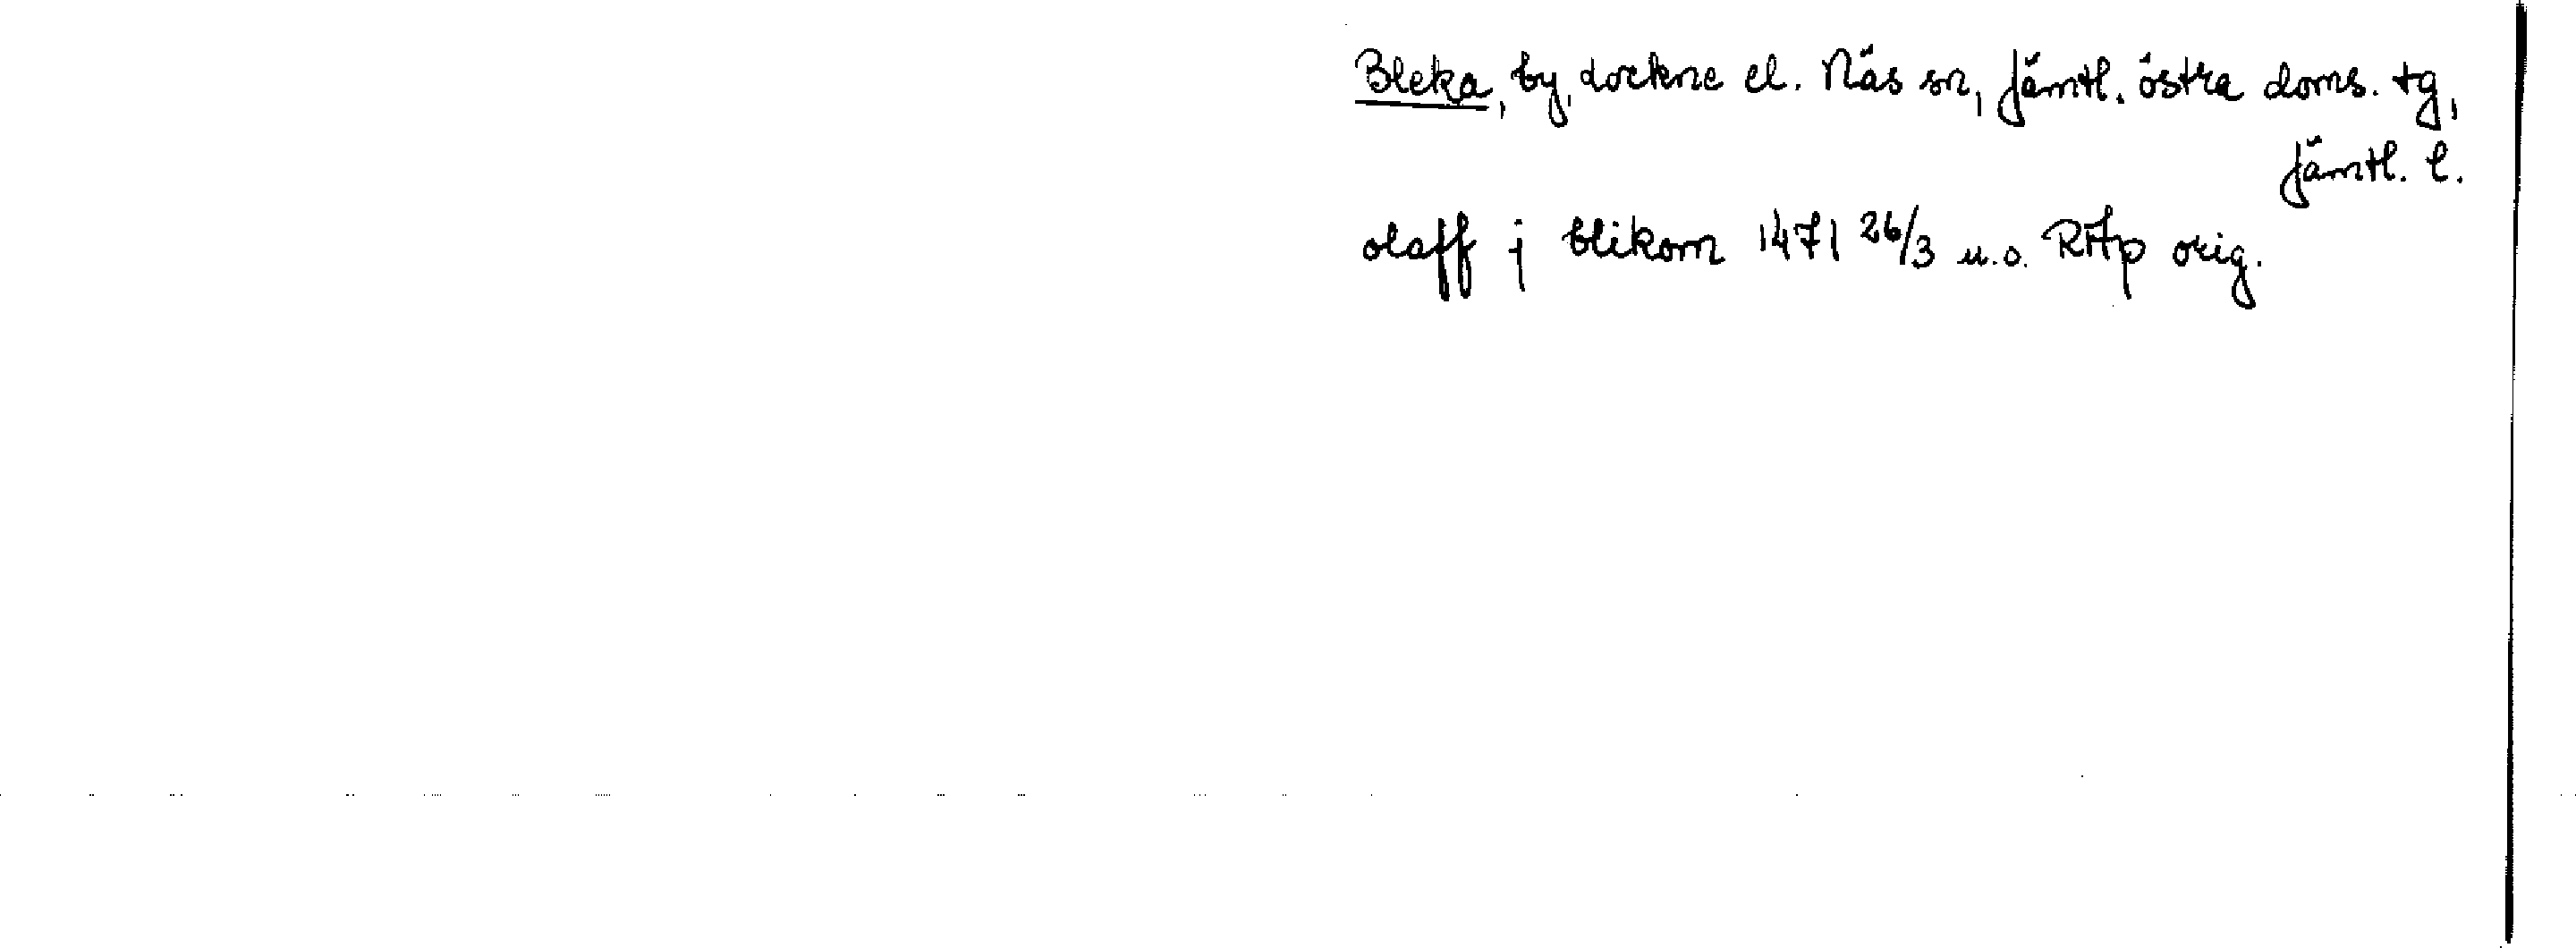 Bleka, by, Lockne el. Näs sn, Jämtl. östra doms. tg,
Jämtl. l.
olaff j blikom 1471 26/3 u.o. RAp orig.